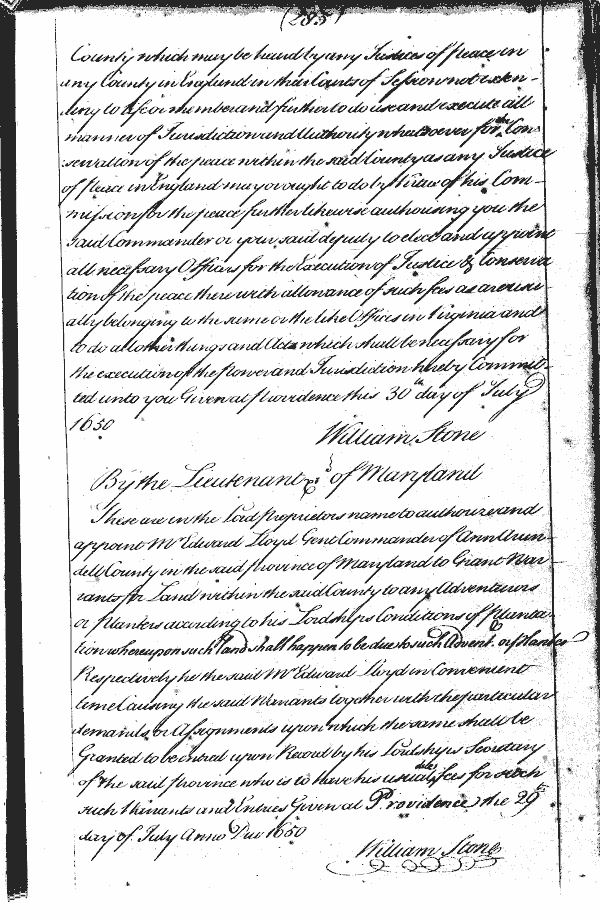 (285)
County which may be heard by any Justices of peace in
any County in England in their Courts of Session not exten-
ding to life or member and further to do use and execute all
manner of Jurisdiction and Authority whatsoever for the Con
servation of the peace within the said County as any Justice
of peace in England may or ought to do by Virtue of his Com-
mission for the peace further likewise authorising you the
said Commander or your said deputy to elect and appoint
all necessary Officers for the Execution of Justice & Conserva
tion of the peace there with allowance of such fees as are usu-
ally belonging to the same or the like Offices in Virginia and
to do all other things and Acts which shall be necessary for
the execution of the power and Jurisdiction hereby Commit-
ted unto you Given at providence this 30th day of July
1650
William Stone
By the Lieutenant &c. of Maryland
These are in the Lord proprietors name to authorize and
appoint Mr Edward Lloyd Gent Commander of Ann Arun-
dell County in the said province of Maryland to Grant War-
rants for Land within the said County to any Adventurers
or planters according to his Lordships Conditions of planta-
tion whereupon such land shall happen to be due to such Advent. or planter
Respectively he the said Mr Edward Lloyd in Convenient
time Causing the said Warrants together with the particular
demands or Assignments upon which the same shall be
Granted to be entred upon Record by his Lordships Secretary
of the said province who is to have his usual fees for such
such Warrants and Entries Given at Providence the 29th
day of July Anno Dni 1650
William Stone